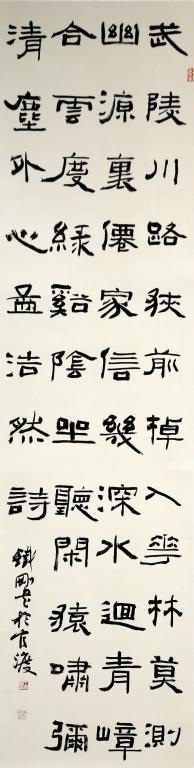 武陵川路狹前棹入華林莫測
幽源裏僊家信幾深水迴青嶂
合雲度綠谿陰坐聽閑猿嘯彌
清塵外心孟浩然詩
鐵剛書於官渡